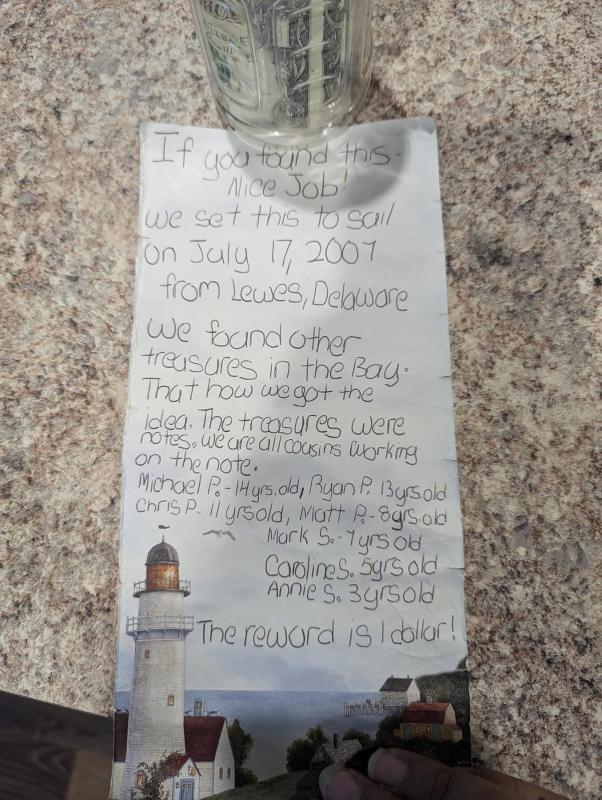 If you found this-
Nice Job!
we set this to sail
on July 17, 2007
from Lewes, Delaware
We found other
treasures in the Bay.
That how we got the
idea. The treasures were
notes. we are all cousins working
on the note.
Michael P. - 14 yrs. old, Ryan P. 13 yrs old
Chris P- 11 yrs old, Matt P.- 8 yrs. old
Mark S.- 7 yrs old
Caroline S. 5 yrs old
Annie S. 3 yrs old
The reward is 1 dollar!